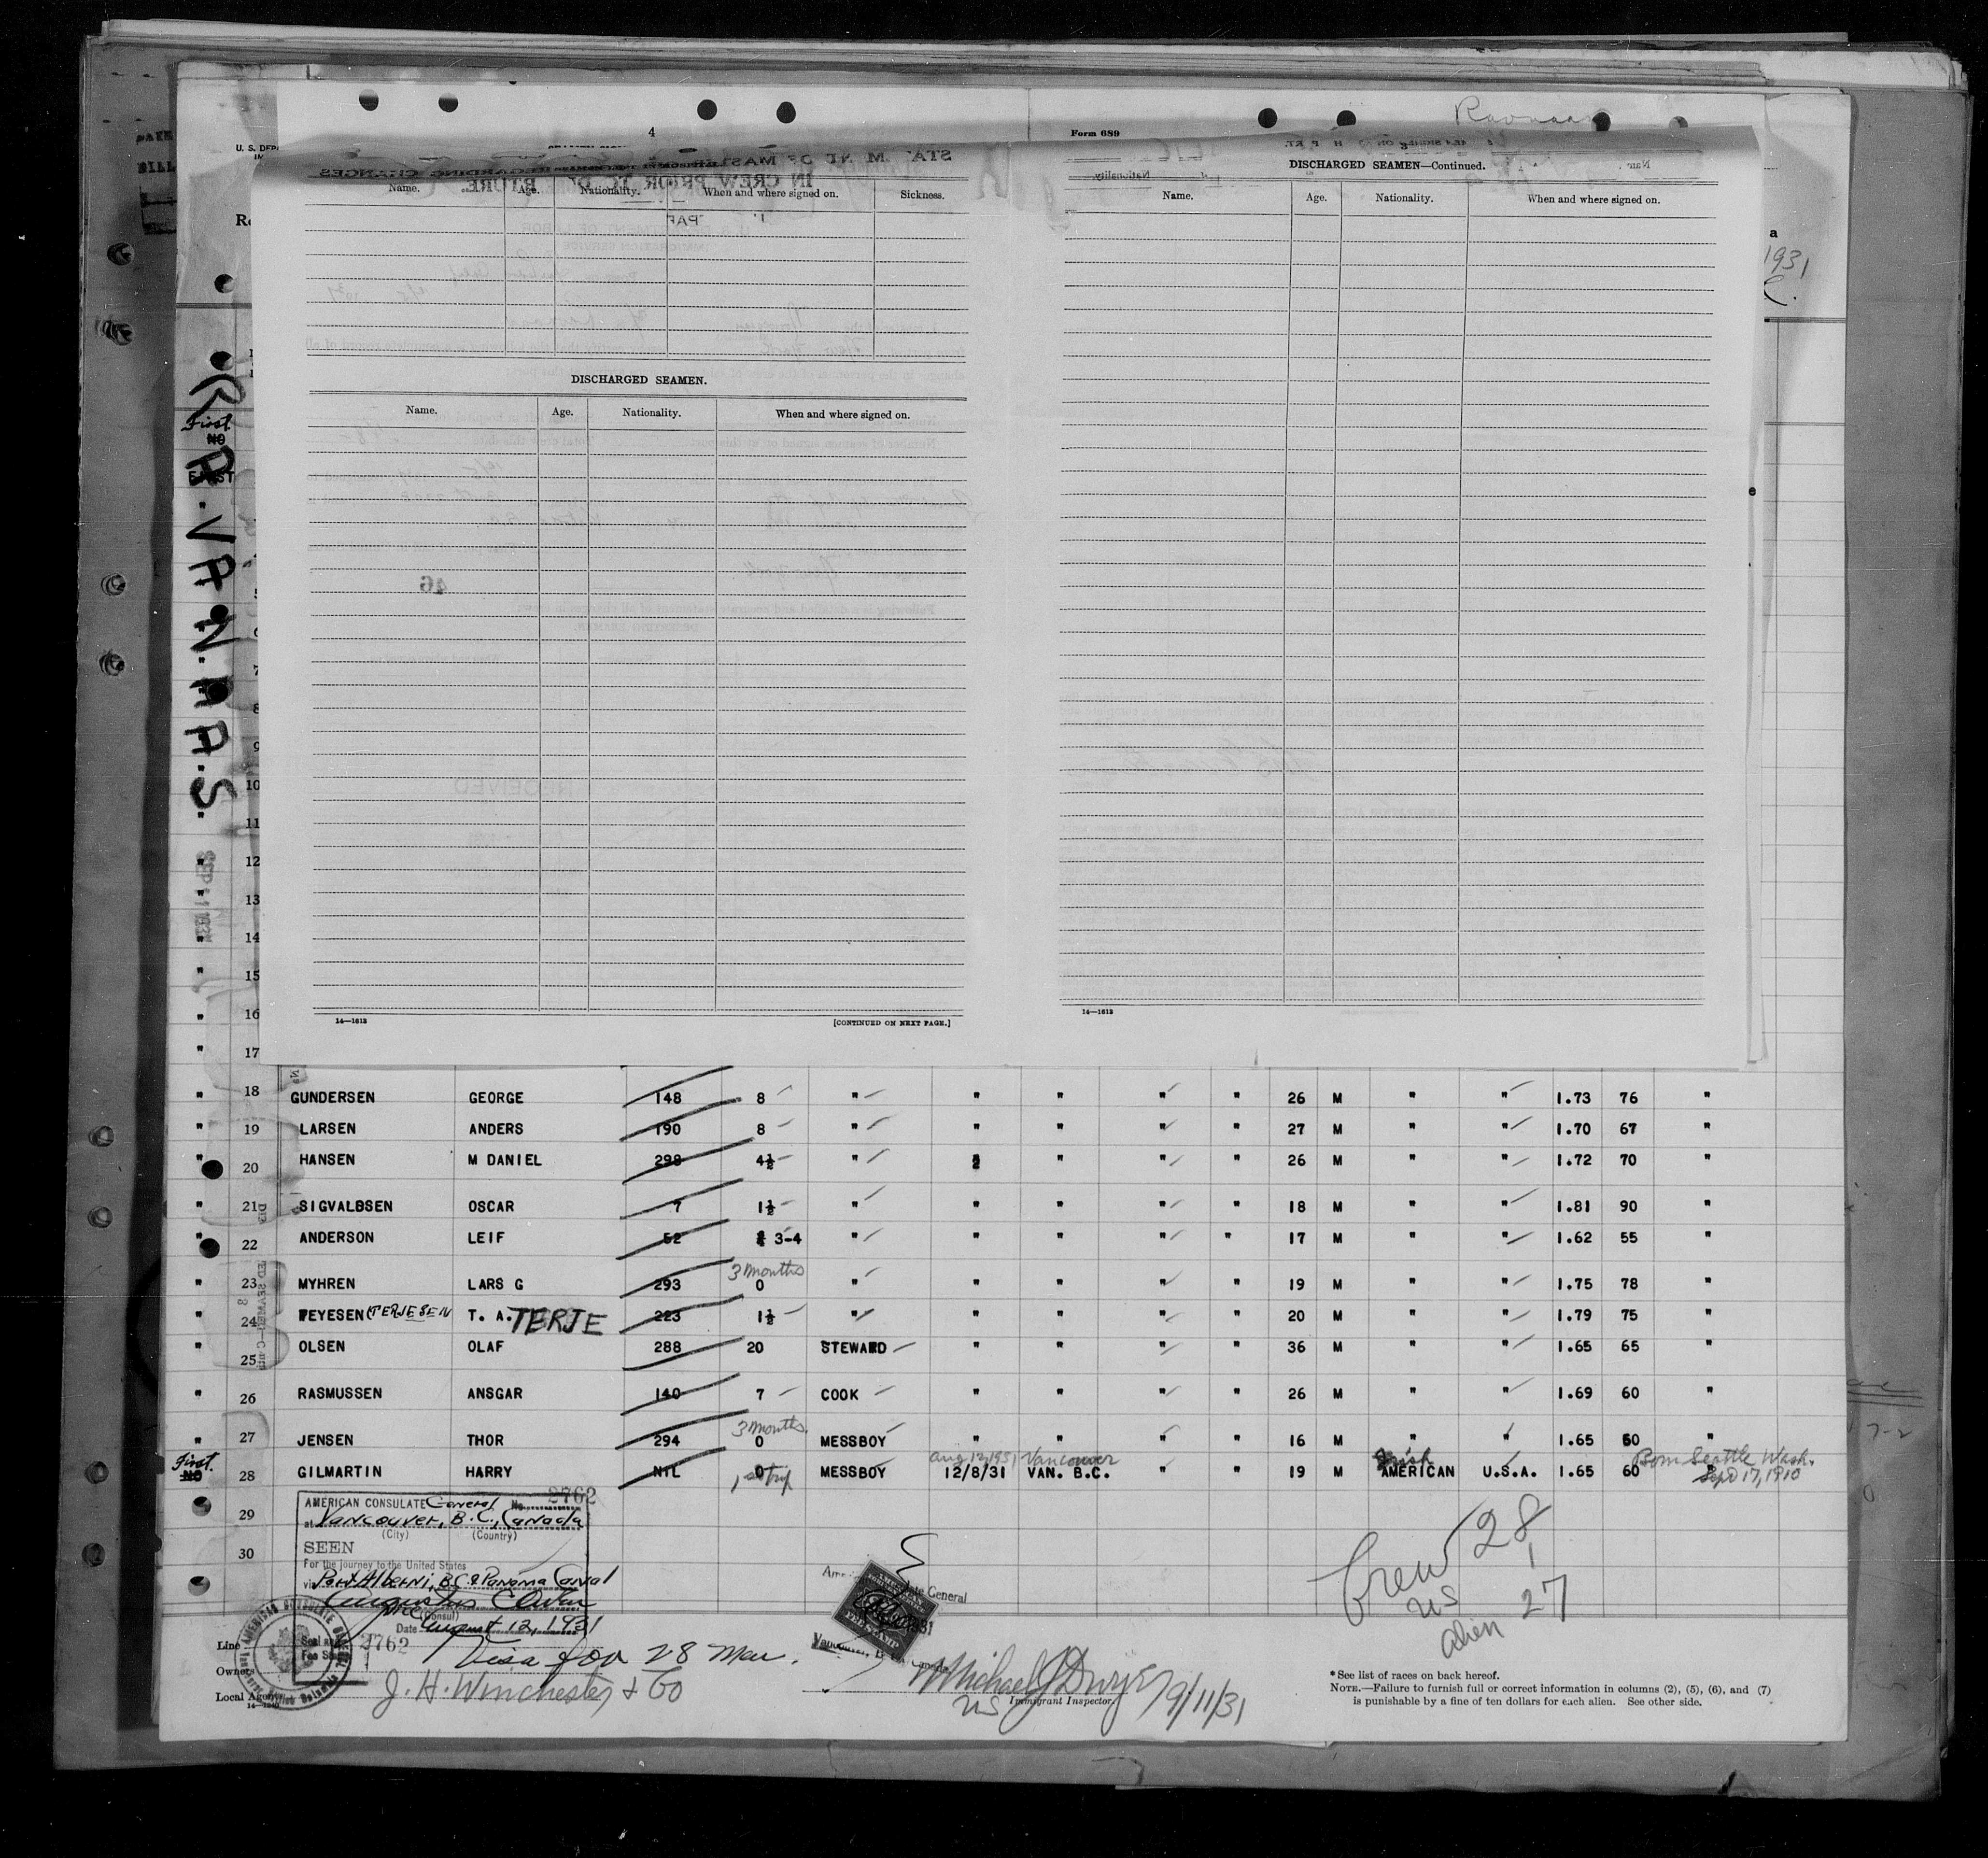 4
Form 689
DISCHARGED SEAMEN—Continued.
Name. Age. Nationality. When and where signed on. Sickness.
Name. Age. Nationality. When and where signed on.
1931
DISCHARGED SEAMEN.
Name. Age. Nationality. When and where signed on.
14—1613
[CONTINUED ON NEXT PAGE.]
14—1613
First
NO
FIRST
5
6
7
8
9
10
11
12
13
14
15
16
17
" 18 GUNDERSEN GEORGE 148 8 " " " " " 26 M " " 1.73 76 "
" 19 LARSEN ANDERS 190 8 " " " " " 27 M " " 1.70 67 "
" 20 HANSEN M DANIEL 298 4½ " 2 " " " 26 M " " 1.72 70 "
" 21 SIGVALDSEN OSCAR 7 1½ " " " " " 18 M " " 1.81 90 "
" 22 ANDERSON LEIF 52 3-4 " " " " " 17 M " " 1.62 55 "
3 months
" 23 MYHREN LARS G 293 0 " " " " " 19 M " " 1.75 78 "
" 24 TEYESEN (TERJESEN T. A. TERJE 223 1½ " " " " " 20 M " " 1.79 75 "
" 25 OLSEN OLAF 288 20 STEWARD " " " " 36 M " " 1.65 65 "
" 26 RASMUSSEN ANSGAR 140 7 COOK " " " " 26 M " " 1.69 60 "
3 months.
" 27 JENSEN THOR 294 0 MESSBOY " " " " 16 M " " 1.65 60 "
First Aug 12, 1931 Vancouver Irish Born Seattle Wash.
NO 28 GILMARTIN HARRY NIL 0 MESSBOY 12/8/31 VAN. B.C. " " 19 M AMERICAN U.S.A. 1.65 60 Sept 17, 1910
1st trip
29
30
AMERICAN CONSULATE General No. 2762
at Vancouver, B.C., Canada
(City) (Country)
SEEN
For the journey to the United States
via Port Alberni, B.C. & Panama Canal
Vice (Consul)
Date August 12, 1931
2762
Visa for 28 Men.
Line
Owners
Local Agents J. H. Winchester & Co
14—1240
Crew 28
US 1
Alien 27
Michael J Dwyer 9/11/31
US Immigrant Inspector.
* See list of races on back hereof.
NOTE.—Failure to furnish full or correct information in columns (2), (5), (6), and (7)
is punishable by a fine of ten dollars for each alien. See other side.